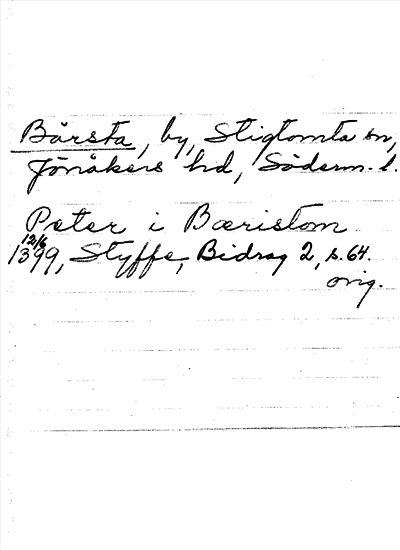 Bärsta, by, Stigtomta sn,
Jönåkers hd, Söderm. l.
Peter i Bæristom
12/6
1399, Styffe, Bidrag 2, s. 64.
orig.